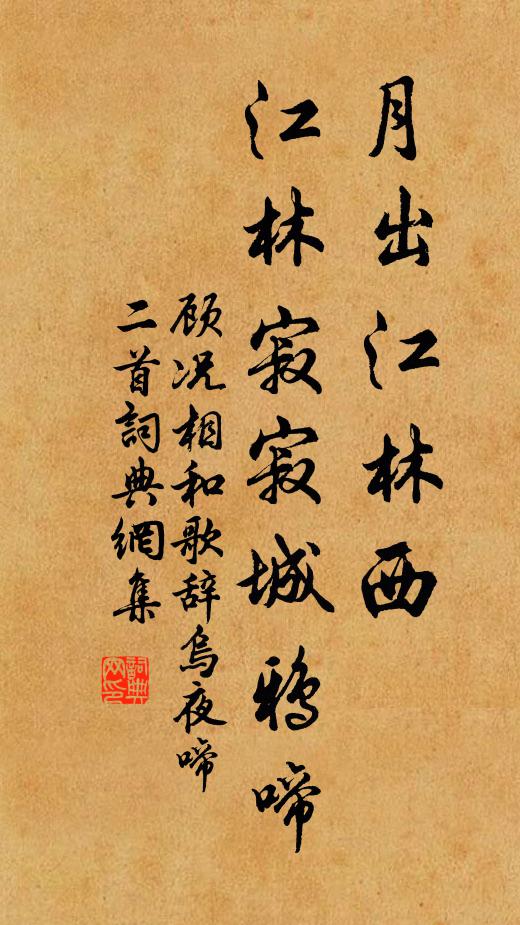 月出江林西
江林寂寂城鸦啼
顾况相和歌辞乌夜啼
二首詞典網集
詞典
网印